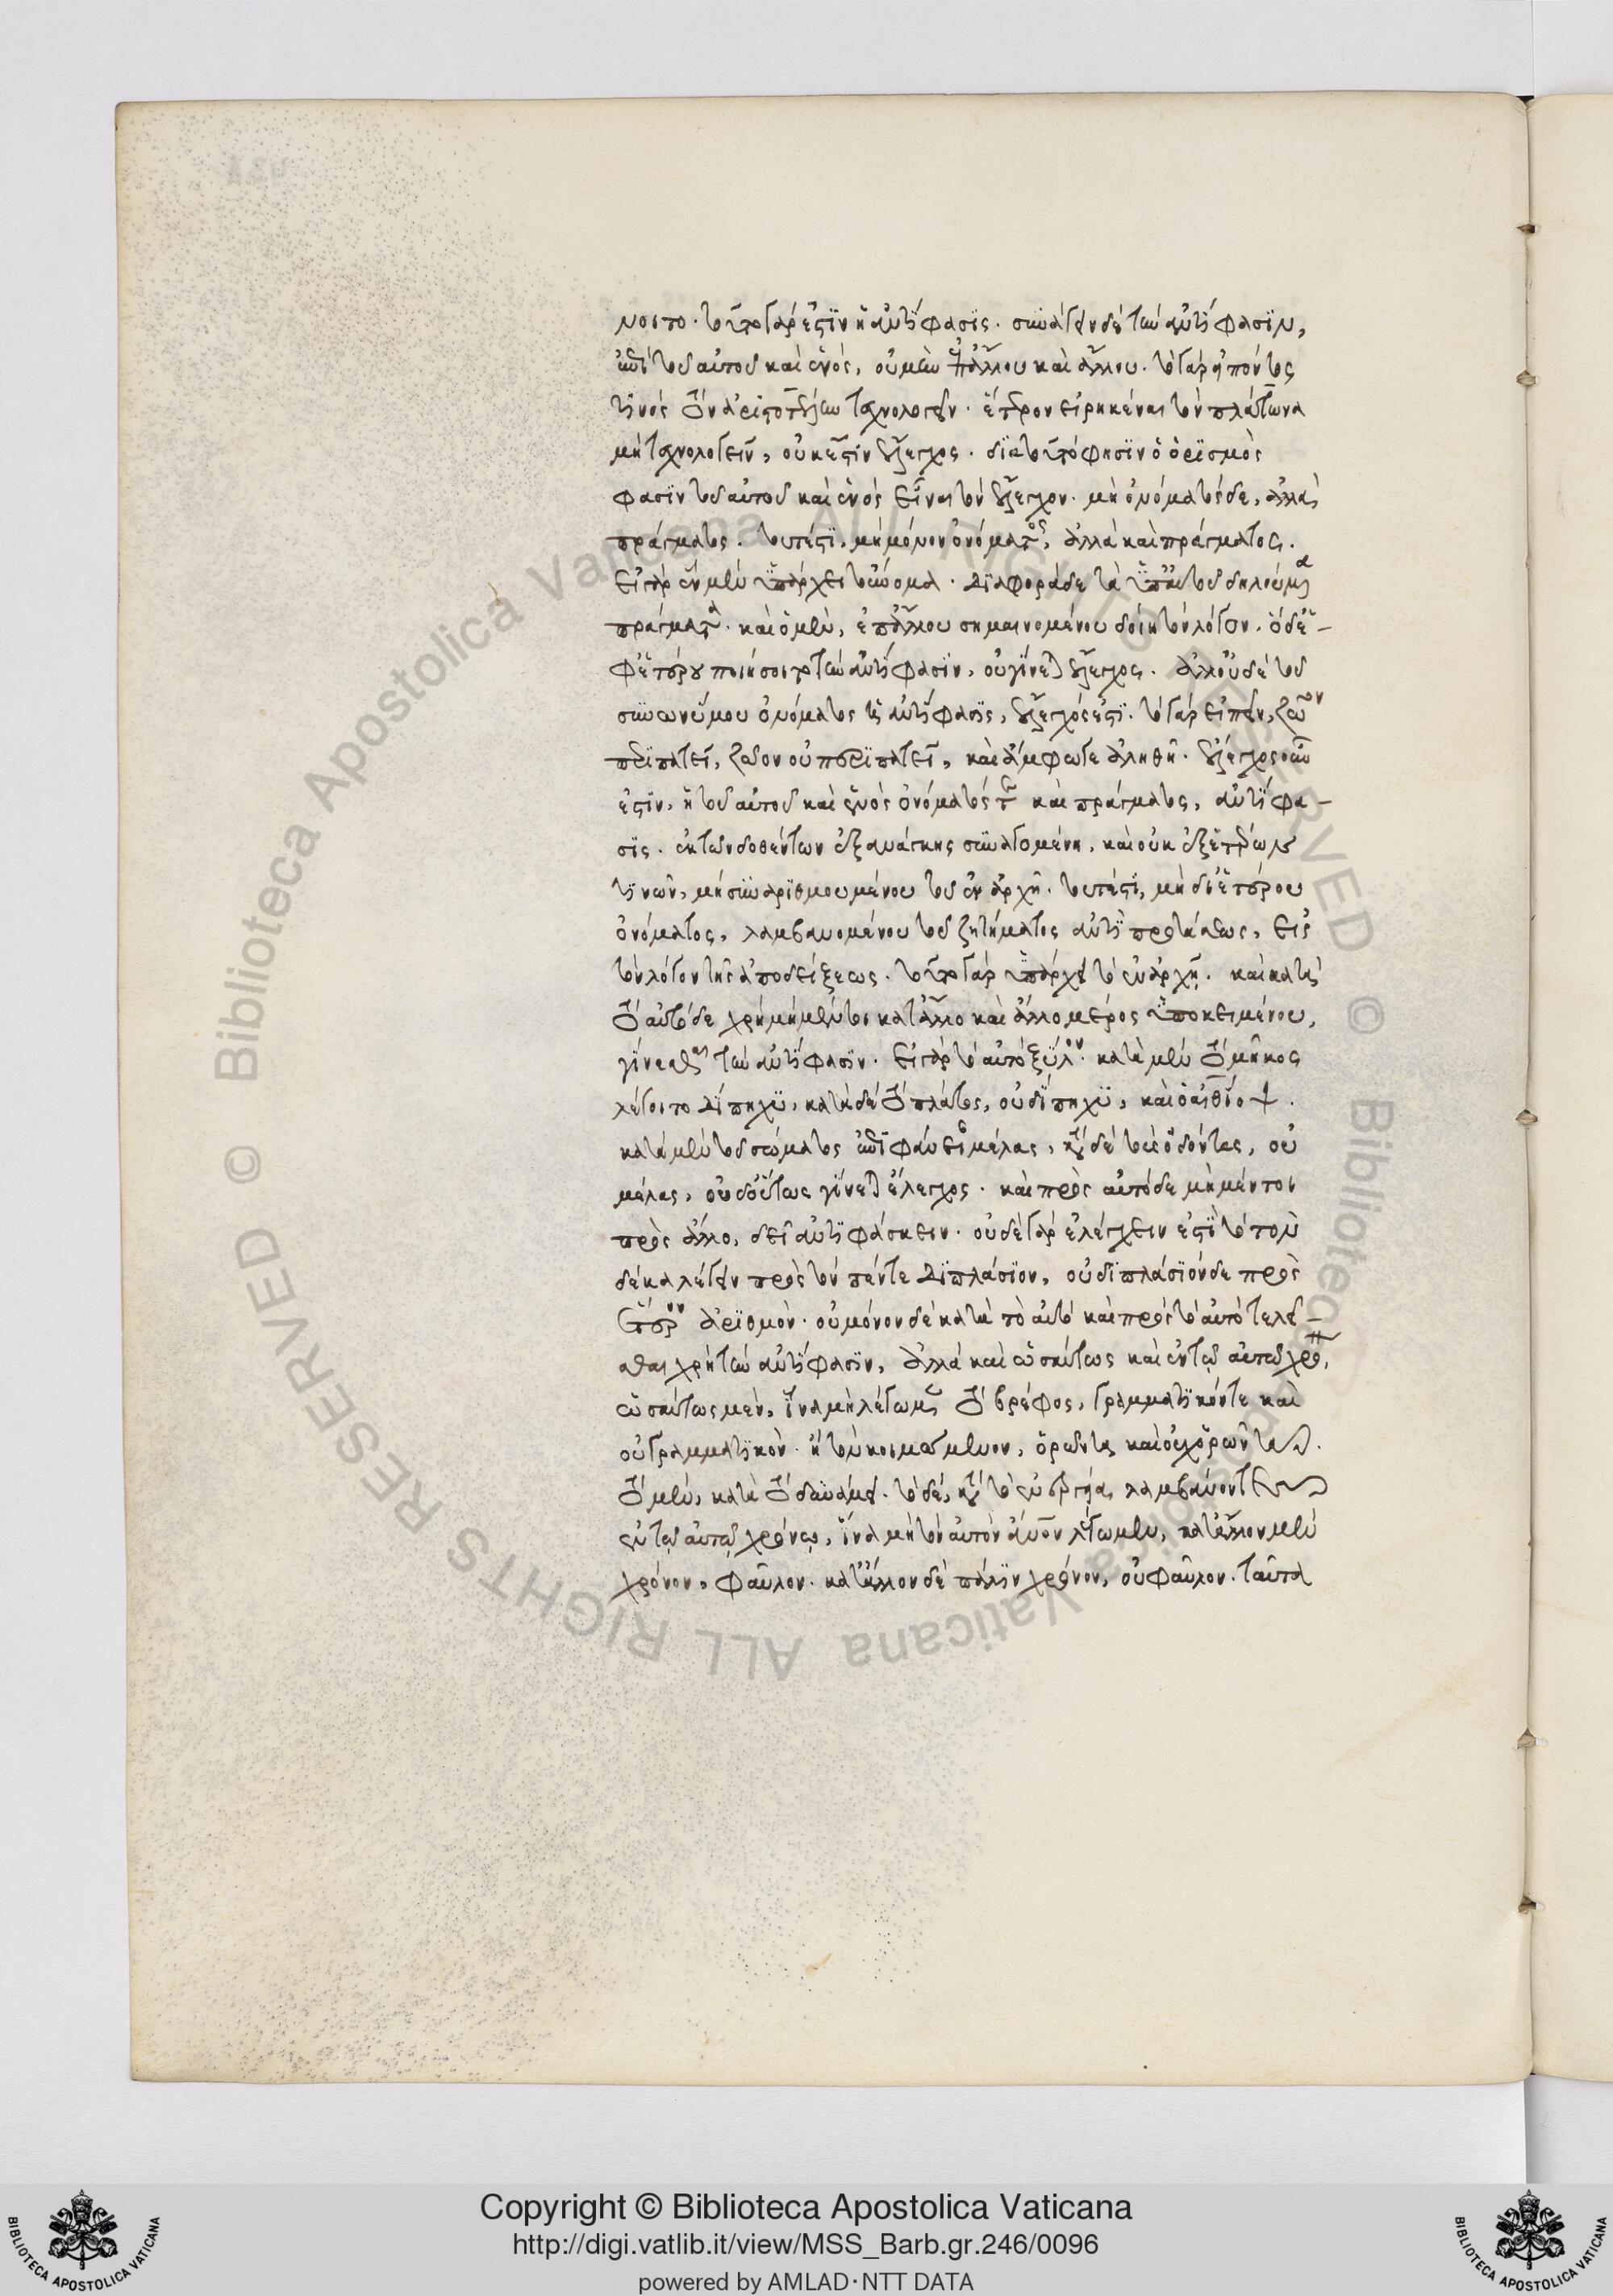 νοιτο· τοῦτο γάρ ἐστϊν ἡ ἀντίφασϊς· συνάγειν δὲ τὴν ἀντίφασϊν,
ἐπὶ τοῦ αὐτοῦ καὶ ἑνός, οὐ μὴν ἐπ' ἄλλου καὶ ἄλλου. τὸ γὰρ εἰπόντος
τινός τὸν ἀριστοτέλην τεχνολογεῖν· ἕτερον εἰρηκέναι τὸν πλάτωνα
μὴ τεχνολογεῖν, οὐκ ἔστιν ἔλεγχος. δϊα τοῦτό φησϊν ὁ ὁρϊσμὸς
φασϊν τοῦ αὐτοῦ καὶ ἑνός εἶναι τὸν ἔλεγχον· μὴ ὀνόματος δε, ἀλλὰ
πράγματος. τουτέστϊ, μὴ μόνον ὀνόματος, ἀλλὰ καὶ πράγματος.
εἰ γὰρ ἓν μὲν ὑπάρχει τὸ ὄνομα· δϊάφορα δε τὰ ὑπ' αὐτοῦ δηλούμενα
πράγματα· καὶ ὁ μὲν, ἐπ' ἄλλου σημαινομένου δοίη τὸν λόγον· ὁ δὲ
ἐφ' ἑτέρου ποιήσοιτο τὴν ἀντίφασϊν, οὐ γίνεται ἔλεγχος. ἀλλ' οὐδὲ τοῦ
συνωνύμου ὀνόματος ἡ ἀντίφασϊς, ἔλεγχός ἐστϊ. τὸ γὰρ εἰπεῖν, ζῶον
περϊπατεῖ, ζῶον οὐ περϊπατεῖ, καὶ ἄμφω γε ἀληθῆ. ἔλεγχος οὖν
ἐστϊν, ἡ τοῦ αὐτοῦ καὶ ἑνὸς ὀνόματός τε καὶ πράγματος, ἀντίφα-
σϊς. ἐκ τῶν δοθέντων ἐξ ἀνάγκης συναγομένη, καὶ οὐκ ἐξ ἑτέρων
τϊνῶν, μὴ συναρϊθμουμένου τοῦ ἐν ἀρχῆ. τουτέστϊ, μὴ δι' ἑτέρου
ὀνόματος, λαμβανομένου τοῦ ζητήματος ἀντὶ προτάσεως, εἰς
τὸν λόγον τῆς ἀποδείξεως. τοῦτο γὰρ ὑπάρχει τὸ ἐν ἀρχῇ. καὶ κατὰ
τὸ αὐτό δε χρὴ μὴ μέντοι κατ' ἄλλο καὶ ἄλλο μέρος ὑποκειμένου,
γίνεσθαι τὴν ἀντίφασϊν. εἰ γὰρ τὸ αὐτὸ ξύλον· κατὰ μὲν τὸ μῆκος
λέγοιτο δίπηχυ, κατὰ δὲ τὸ πλάτος, οὐ δίπηχυ, καὶ ὁ αἰθίοψ.
κατὰ μὲν τοῦ σώματος ἐπιφάνειαν μέλας, κατὰ δὲ τοὺς ὀδόντας, οὐ
μέλας, οὐδ' οὕτως γίνεται ἔλεγχος. καὶ πρὸς αὐτό δε μὴ μέντοι
πρὸς ἄλλο, δεῖ ἀντϊφάσκειν· οὐδὲ γὰρ ἐλέγχειν ἐστϊ τὸ τὸν
δέκα λέγειν πρὸς τὸν πέντε δϊπλάσϊον, οὐ δϊπλάσϊον δε πρὸς
ἕτερον ἀρϊθμὸν· οὐ μόνον δὲ κατὰ τὸ αὐτὸ καὶ πρὸς τὸ αὐτὸ γενέ-
σθαι χρὴ τὴν ἀντίφασϊν, ἀλλὰ καὶ ὡσαύτως καὶ ἐν τῷ αὐτῷ χρόνῳ,
ὡσαύτως μέν, ἵνα μὴ λέγωμεν τὸ βρέφος, γραμματϊκόν τε καὶ
οὐ γραμματϊκὸν· ἢ τὸν κοιμώμενον, ὁρῶντα καὶ οὐχ ὁρῶντα.
τὸ μὲν, κατὰ τὸ δυνάμει. τὸ δὲ, κατὰ τὸ ἐνεργείᾳ, λαμβάνοντες
ἐν τῷ αὐτῷ χρόνῳ, ἵνα μὴ τὸν αὐτὸν ἄνθρωπον λέγωμεν, κατ' ἄλλον μὲν
χρόνον, φαῦλον. κατ' ἄλλον δὲ πάλϊν χρόνον, οὐ φαῦλον. ταῦτα
Copyright © Biblioteca Apostolica Vaticana
http://digi.vatlib.it/view/MSS_Barb.gr.246/0096
powered by AMLAD·NTT DATA